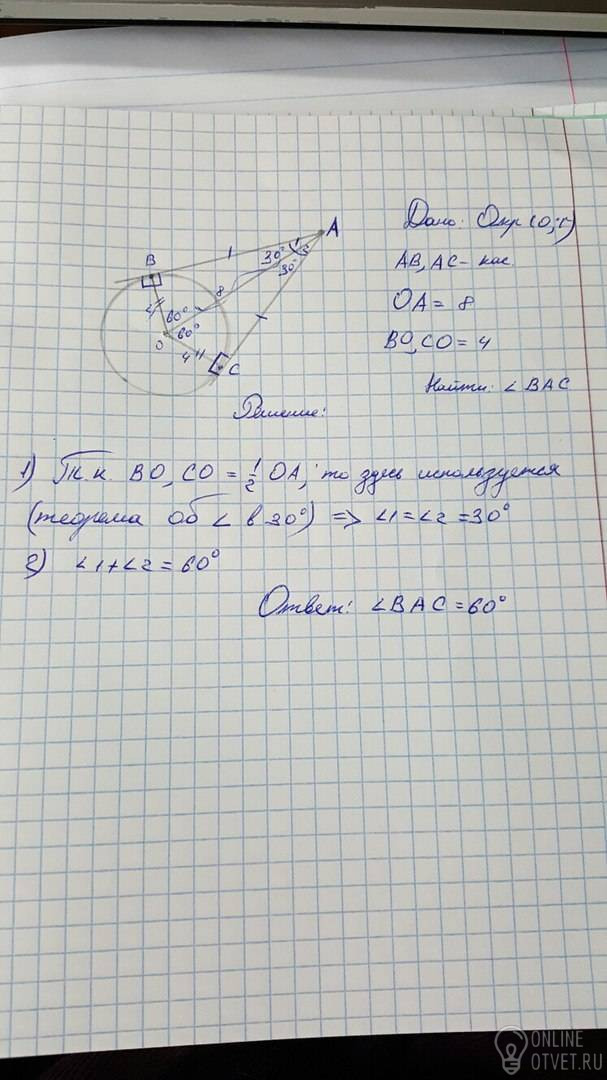 A
B
O
C
30°
1
2
30°
8
4
60°
60°
4
Дано: Окр (О; r)
AB, AC - кас.
OA = 8
BO, CO = 4
Найти: ∠ BAC
Решение:
1) Т.к. BO, CO = 1/2 OA, то здесь используется
(теорема об ∠ в 30°) => ∠1=∠2=30°
2) ∠1+∠2=60°
Ответ: ∠BAC=60°
ONLINE
OTVET.RU